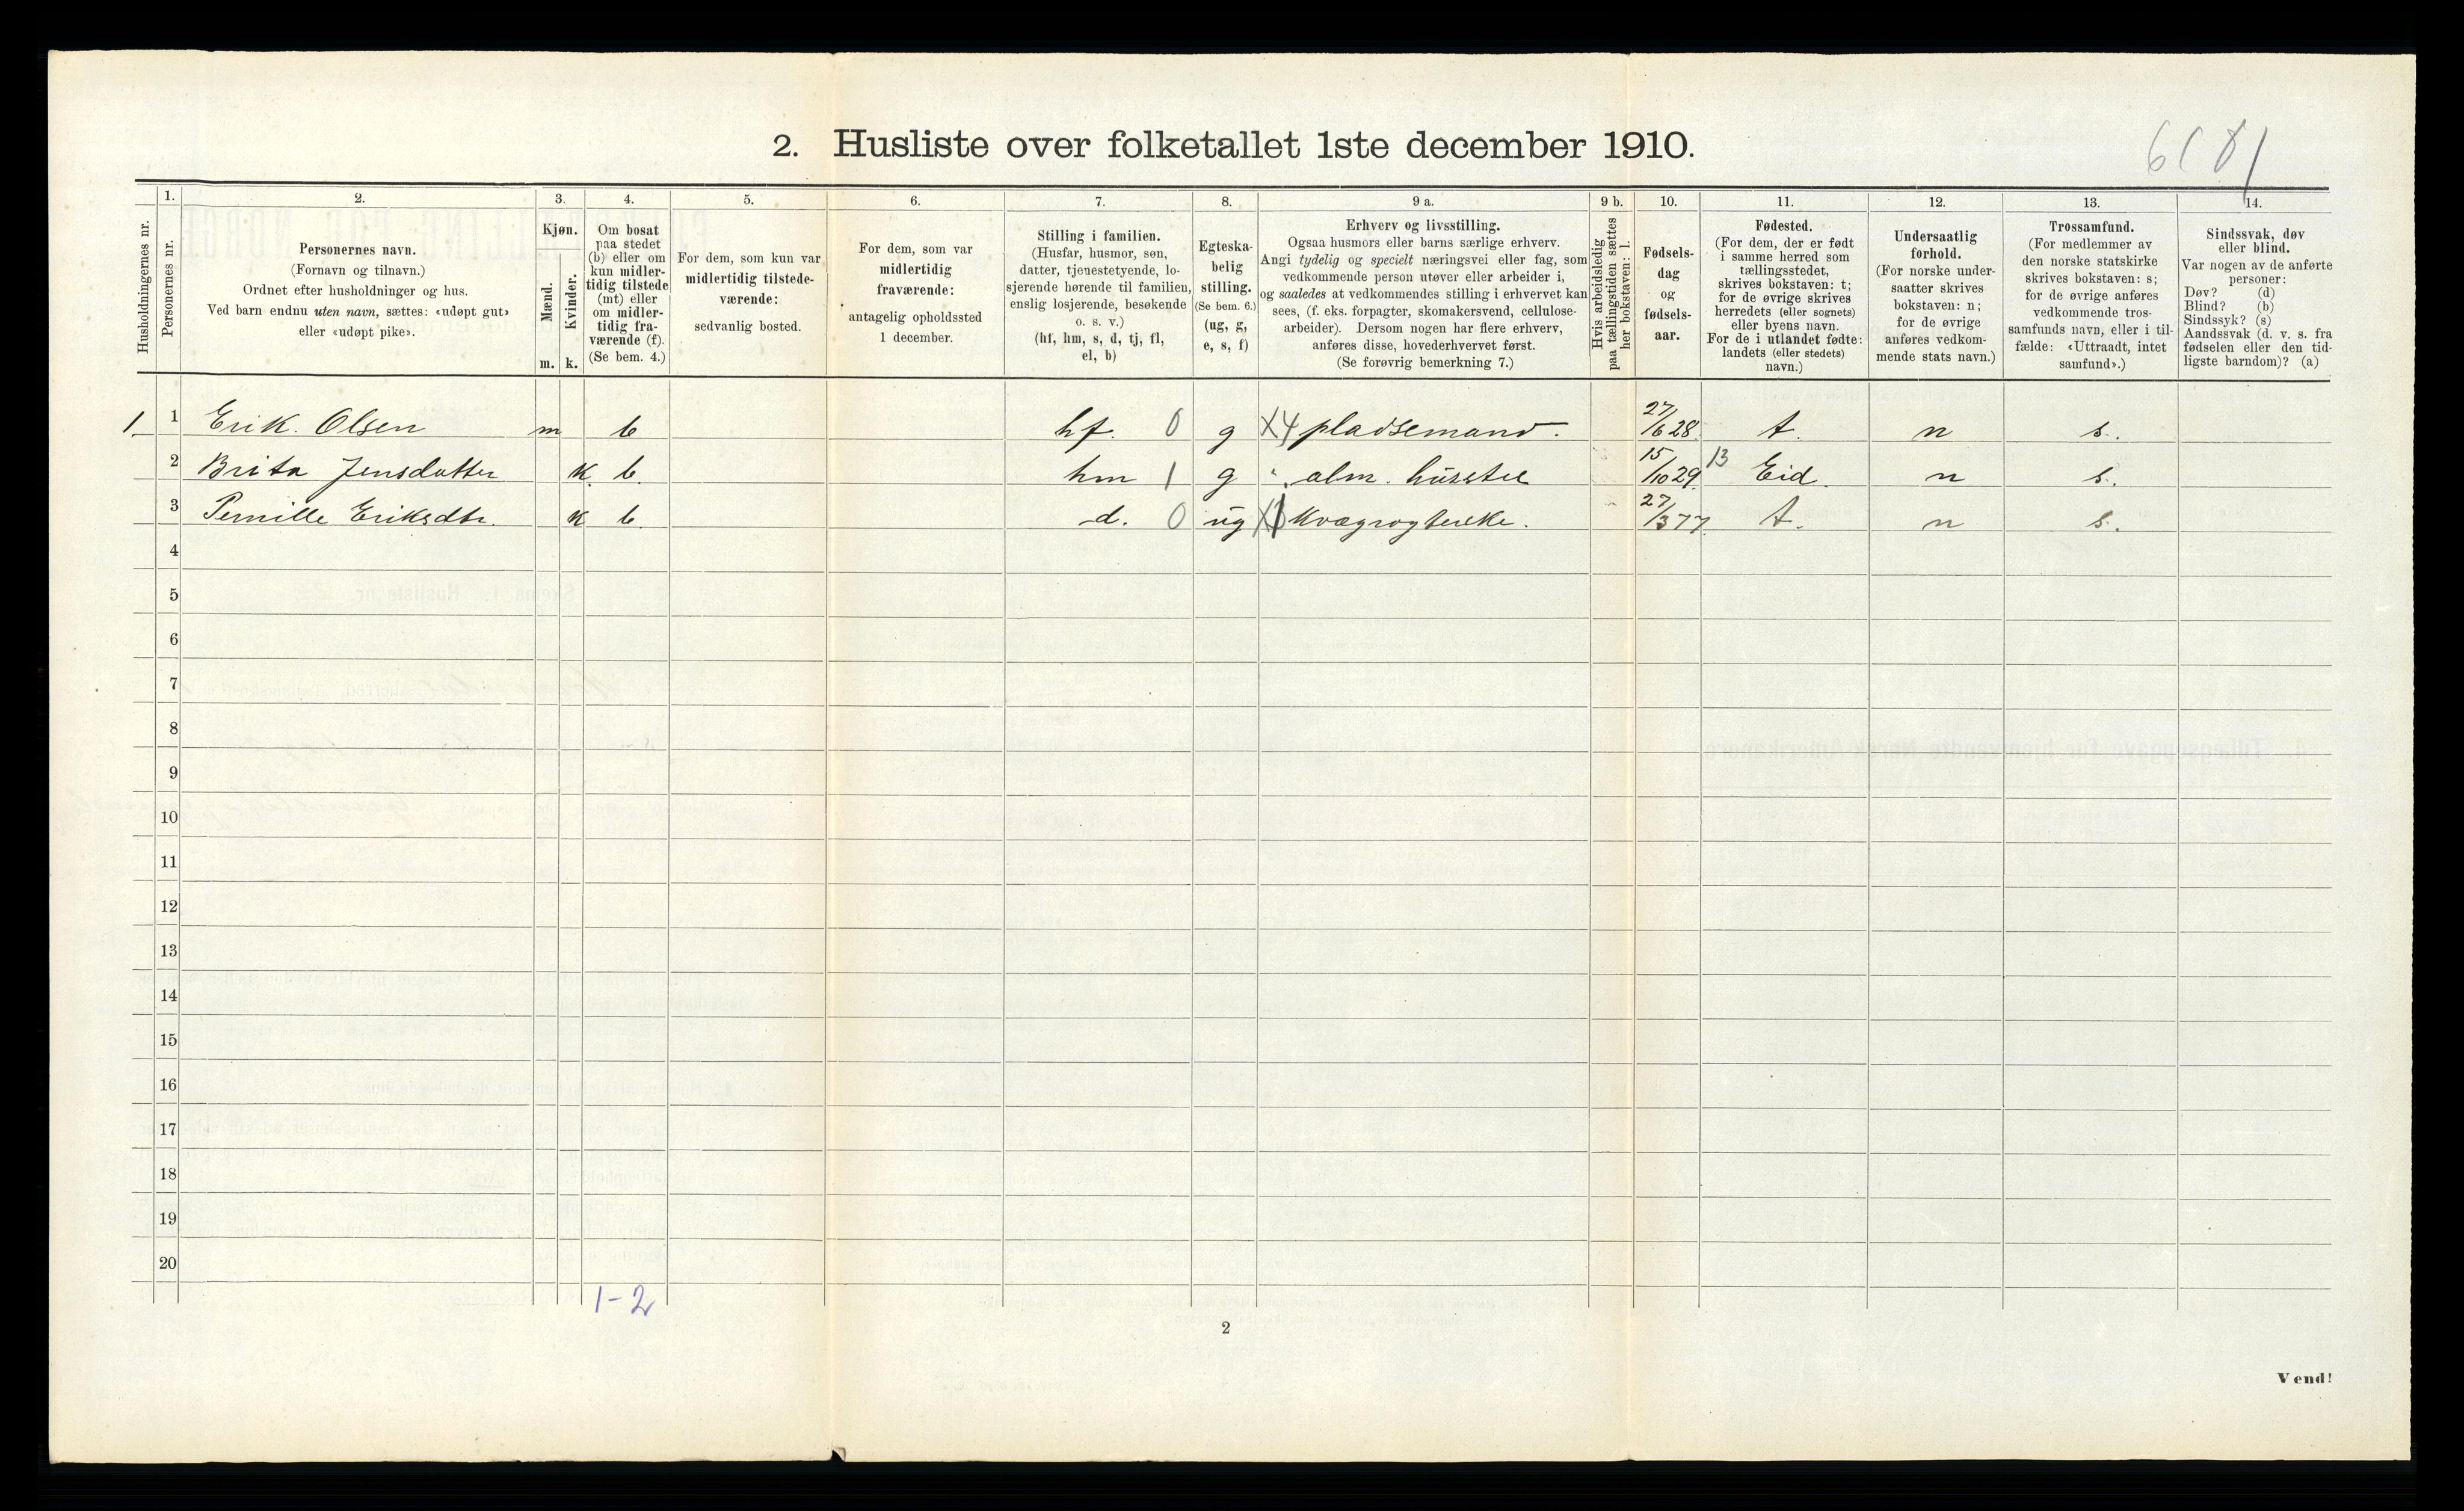 2. Husliste over folketallet 1ste december 1910.
Husholdningernes nr.
1.
Personernes nr.
2.
Personernes navn.
(Fornavn og tilnavn.)
Ordnet efter husholdninger og hus.
Ved barn endnu uten navn, sættes: «udøpt gut»
eller «udøpt pike».
3.
Kjøn.
Mænd.
Kvinder.
m. k.
4.
Om bosat
paa stedet
(b) eller om
kun midler-
tidig tilstede
(mt) eller
om midler-
tidig fra-
værende (f).
(Se bem. 4.)
5.
For dem, som kun var
midlertidig tilstede-
værende:
sedvanlig bosted.
6.
For dem, som var
midlertidig
fraværende:
antagelig opholdssted
1 december.
7.
Stilling i familien.
(Husfar, husmor, søn,
datter, tjenestetyende, lo-
sjerende hørende til familien,
enslig losjerende, besøkende
o. s. v.)
(hf, hm, s, d, tj, fl,
el, b)
8.
Egteska-
belig
stilling.
(Se bem. 6.)
(ug, g,
e, s, f)
9 a.
Erhverv og livsstilling.
Ogsaa husmors eller barns særlige erhverv.
Angi tydelig og specielt næringsvei eller fag, som
vedkommende person utøver eller arbeider i,
og saaledes at vedkommendes stilling i erhvervet kan
sees, (f. eks. forpagter, skomakersvend, cellulose-
arbeider). Dersom nogen har flere erhverv,
anføres disse, hovederhvervet først.
(Se forøvrig bemerkning 7.)
9 b.
Hvis arbeidsledig
paa tællingstiden sættes
her bokstaven: l.
10.
Fødsels-
dag
og
fødsels-
aar.
11.
Fødested.
(For dem, der er født
i samme herred som
tællingsstedet,
skrives bokstaven: t;
for de øvrige skrives
herredets (eller sognets)
eller byens navn.
For de i utlandet fødte:
landets (eller stedets)
navn.)
12.
Undersaatlig
forhold.
(For norske under-
saatter skrives
bokstaven: n;
for de øvrige
anføres vedkom-
mende stats navn.)
13.
Trossamfund.
(For medlemmer av
den norske statskirke
skrives bokstaven: s;
for de øvrige anføres
vedkommende tros-
samfunds navn, eller i til-
fælde: «Uttraadt, intet
samfund».)
14.
Sindssvak, døv
eller blind.
Var nogen av de anførte
personer:
Døv? (d)
Blind? (b)
Sindssyk? (s)
Aandssvak (d. v. s. fra
fødselen eller den tid-
ligste barndom)? (a)
1 1 Erik Olsen m b hf. 0 g X4 pladsemand. 27/6 28 t. n s.
2 Brita Jensdatter k b. hm 1 g alm. husstel 15/10 29 13 Eid. n s.
3 Pernille Eriksdtr. k b. d. 0 ug 27/3 77 t. n s.
4
5
6
7
8
9
10
11
12
13
14
15
16
17
18
19
20
1-2
2
Vend!